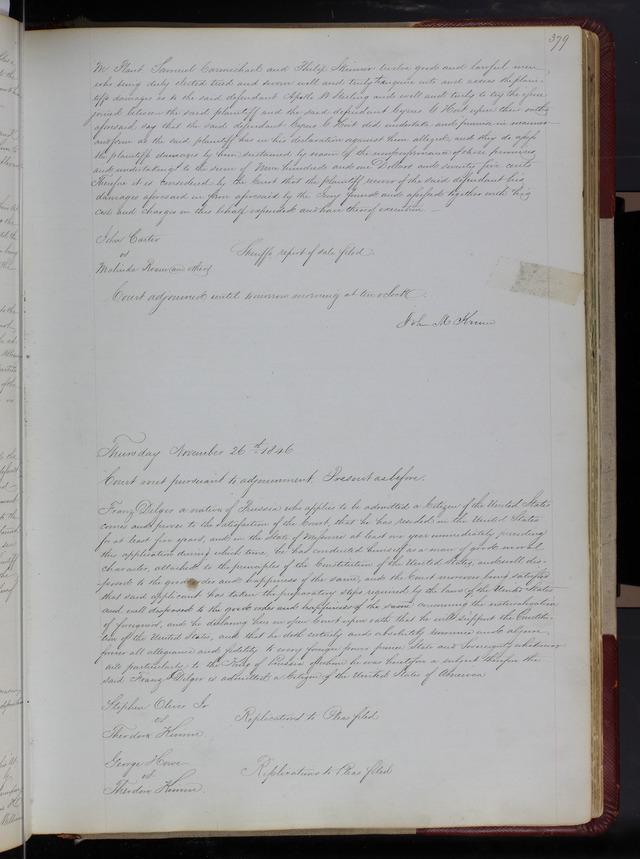 379
Wm Plant Samuel Carmichael and Philip Skinner twelve good and lawful men
who being duly elected tried and sworn well and truly to enquire into and assess the plain-
tiffs damages as to the said defendant Apollo W and well and truly to try the issue
joined between the said plaintiff and the said defendant Cyrus C upon their oaths
aforesaid say that the said defendant Cyrus C did undertake and promise in manner
and form as the said plaintiff has in his declaration against him alleged, and they do assess
the plaintiffs damages by him sustained by reason of the nonperformance of these promises
and undertakings to the sum of hundred and one Dollars and seventy five cents
Therefore it is considered by the Court that the plaintiff recover of the said defendant his
damages aforesaid in form aforesaid by the Jury found and assessed together with his
costs and charges in this behalf expended and have thereof execution
John Carter
vs
Malinda and others
Sheriffs report of sale filed
Court adjourned until tomorrow morning at ten oclock
John M Krum
Thursday November 26th 1846
Court met pursuant to adjournment. Present as before.
Franz Dilger a native of Prussia who applies to be admitted a Citizen of the United States
comes and proves to the satisfaction of the Court, that he has resided in the United States
for at least five years, and in the State of Missouri at least one year immediately preceding
this application during which time, he has conducted himself as a man of good moral
character, attached to the principles of the Constitution of the United States, and well dis-
posed to the good order and happiness of the same, and the Court moreover being satisfied
that said applicant has taken the preparatory steps required by the laws of the United States
and well disposed to the good order and happiness of the same concerning the naturalization
of foreigners, and he declaring here in open Court upon oath that he will support the Constitu-
tion of the United States, and that he doth entirely and absolutely renounce and abjure
forever all allegiance and fidelity to every foreign power prince State and Sovereignty whatsoever
and particularly to the King of Prussia of whom he was heretofore a subject Therefore the
said Franz Dilger is admitted a Citizen of the United States of America
Stephen Jr
vs
Theodore
Replications to Pleas filed
George
vs
Theodore
Replications to Pleas filed